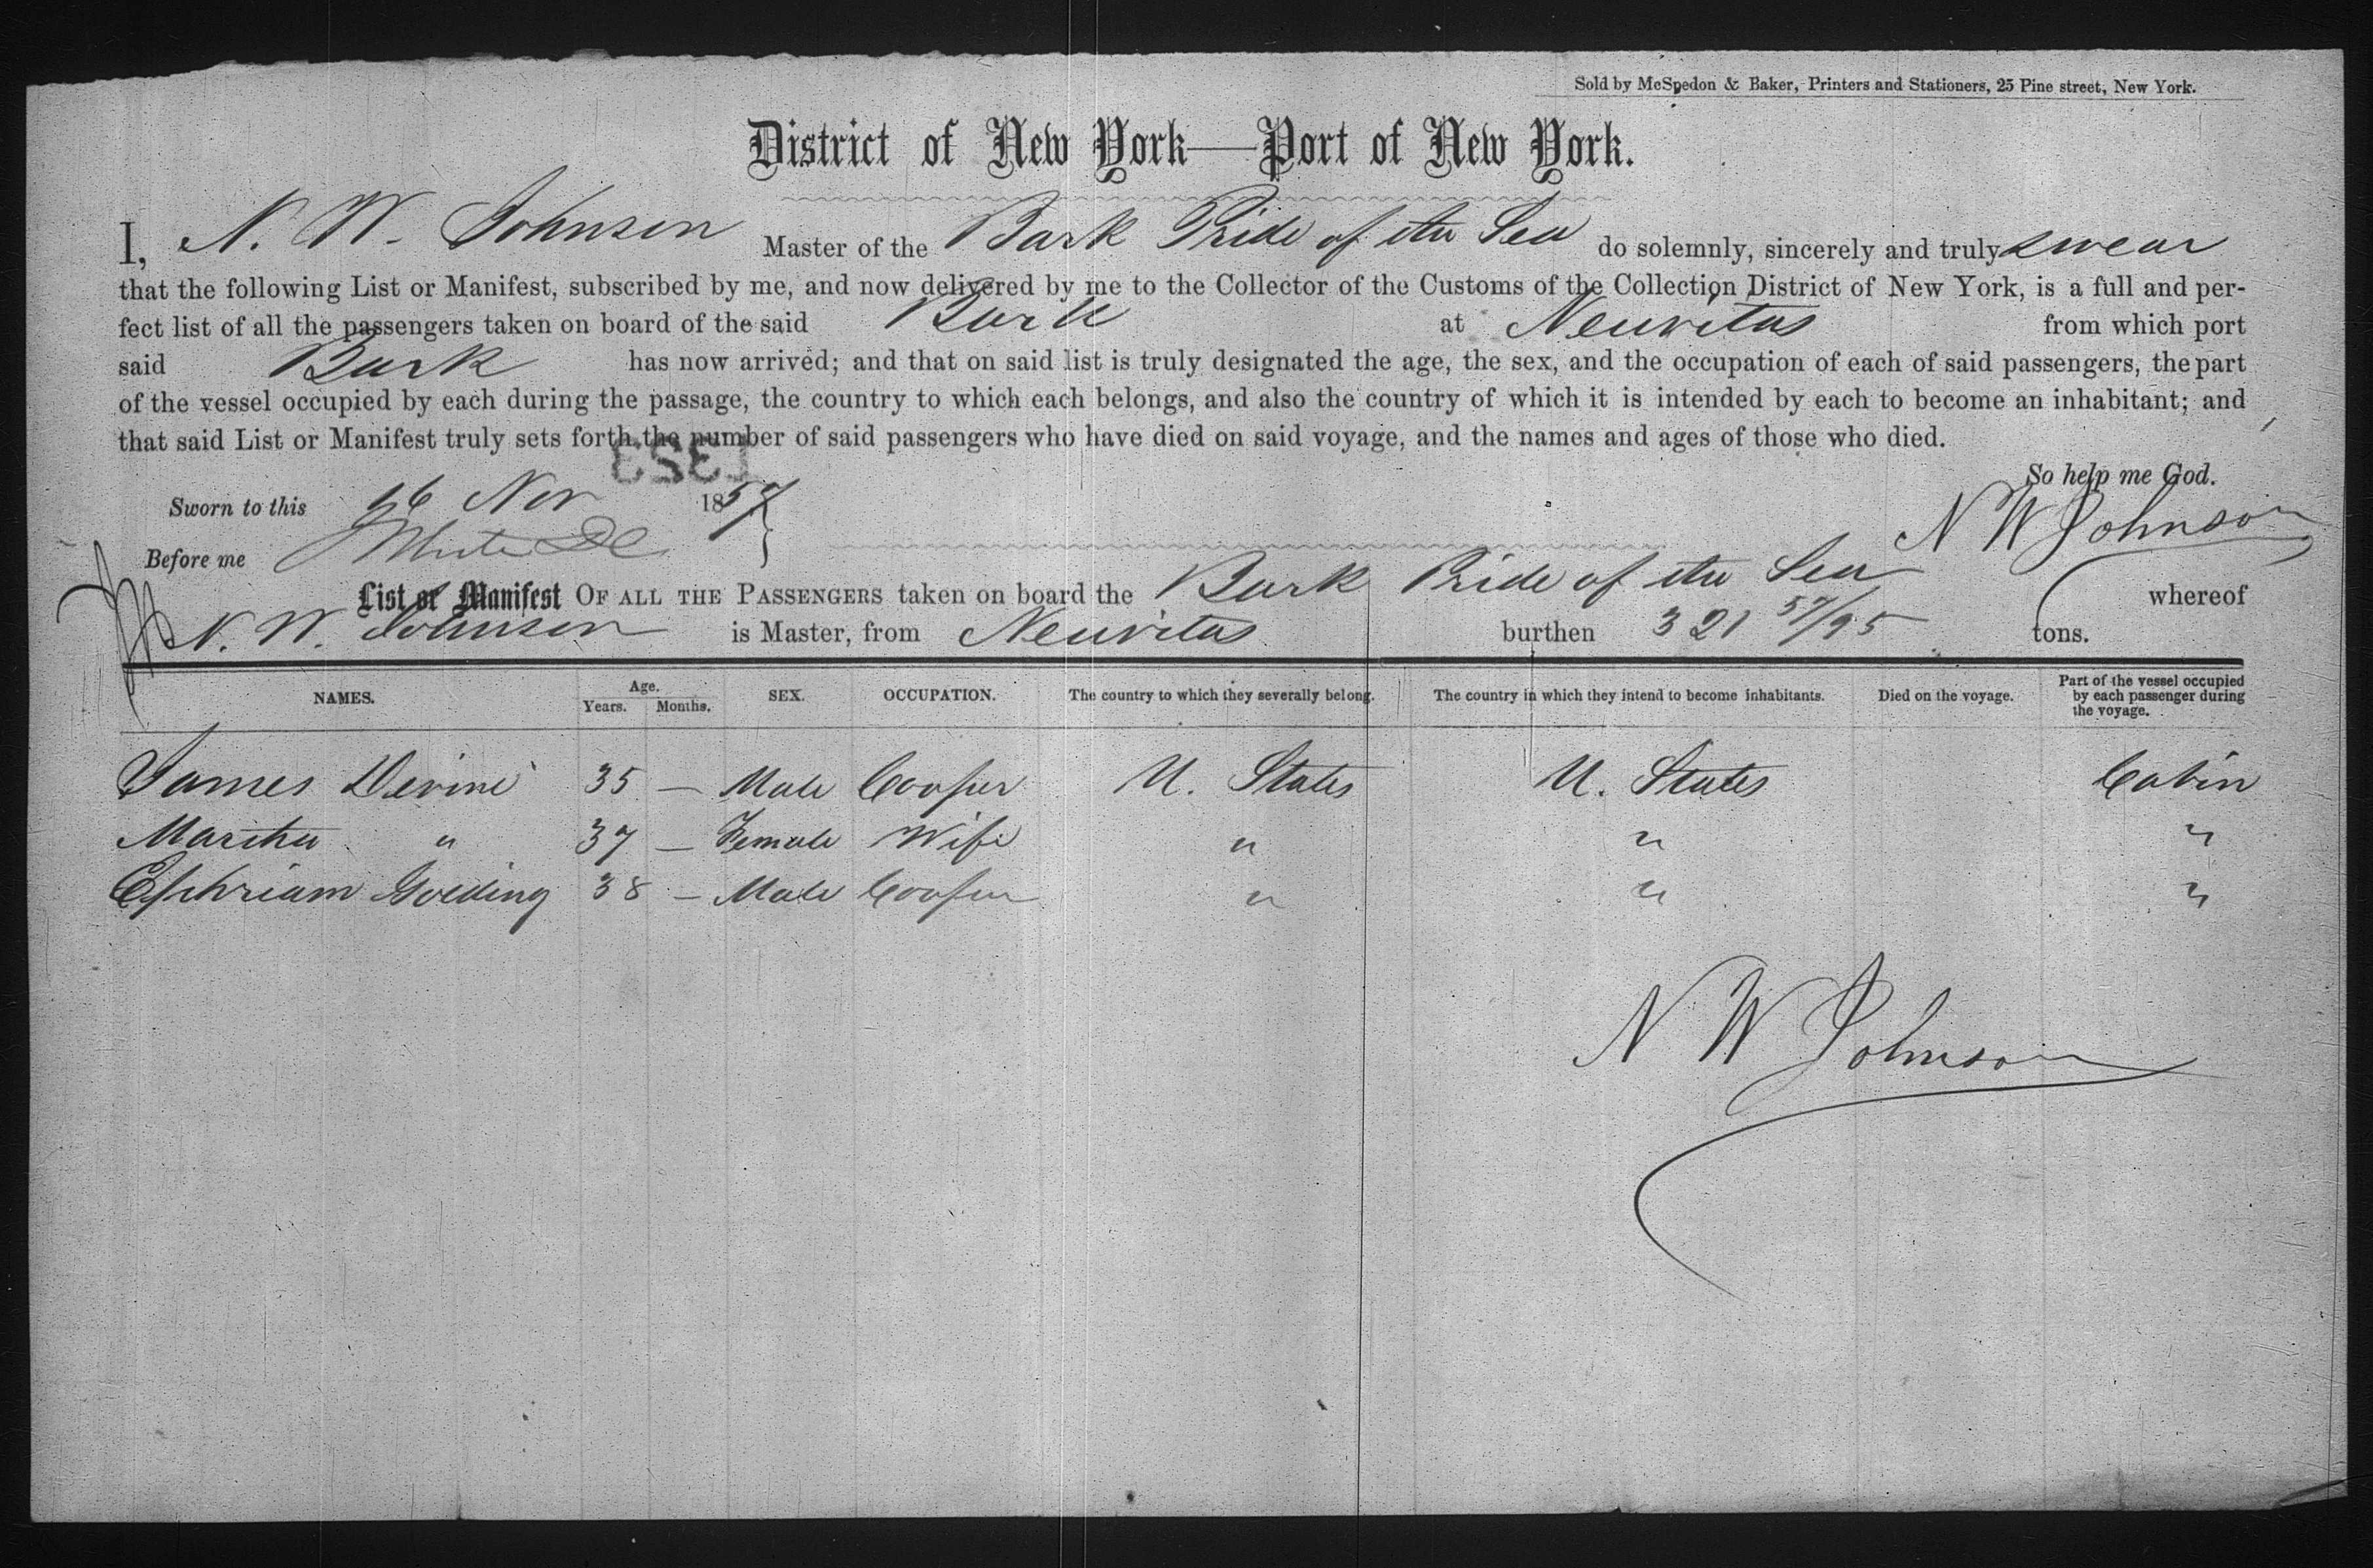 Sold by McSpedon & Baker, Printers and Stationers, 25 Pine street, New York.
District of New York—Port of New York.
I, N. W. Johnson Master of the Bark Pride of the Sea do solemnly, sincerely and truly swear
that the following List or Manifest, subscribed by me, and now delivered by me to the Collector of the Customs of the Collection District of New York, is a full and per-
fect list of all the passengers taken on board of the said Bark at Neuvitas from which port
said Bark has now arrived; and that on said list is truly designated the age, the sex, and the occupation of each of said passengers, the part
of the vessel occupied by each during the passage, the country to which each belongs, and also the country of which it is intended by each to become an inhabitant; and
that said List or Manifest truly sets forth the number of said passengers who have died on said voyage, and the names and ages of those who died.
So help me God.
Sworn to this 16 Nov 1857
N W Johnson
Before me
List or Manifest OF ALL THE PASSENGERS taken on board the Bark Pride of the Sea whereof
N. W. Johnson is Master, from Neuvitas burthen 321 57/95 tons.
NAMES. Age. Years. Months. SEX. OCCUPATION. The country to which they severally belong. The country in which they intend to become inhabitants. Died on the voyage. Part of the vessel occupied by each passenger during the voyage.
James Devine 35 — Male Cooper U. States U. States Cabin
Martha " 37 — Female Wife " " "
Ephriam Golding 38 — Male Cooper " " "
N W Johnson